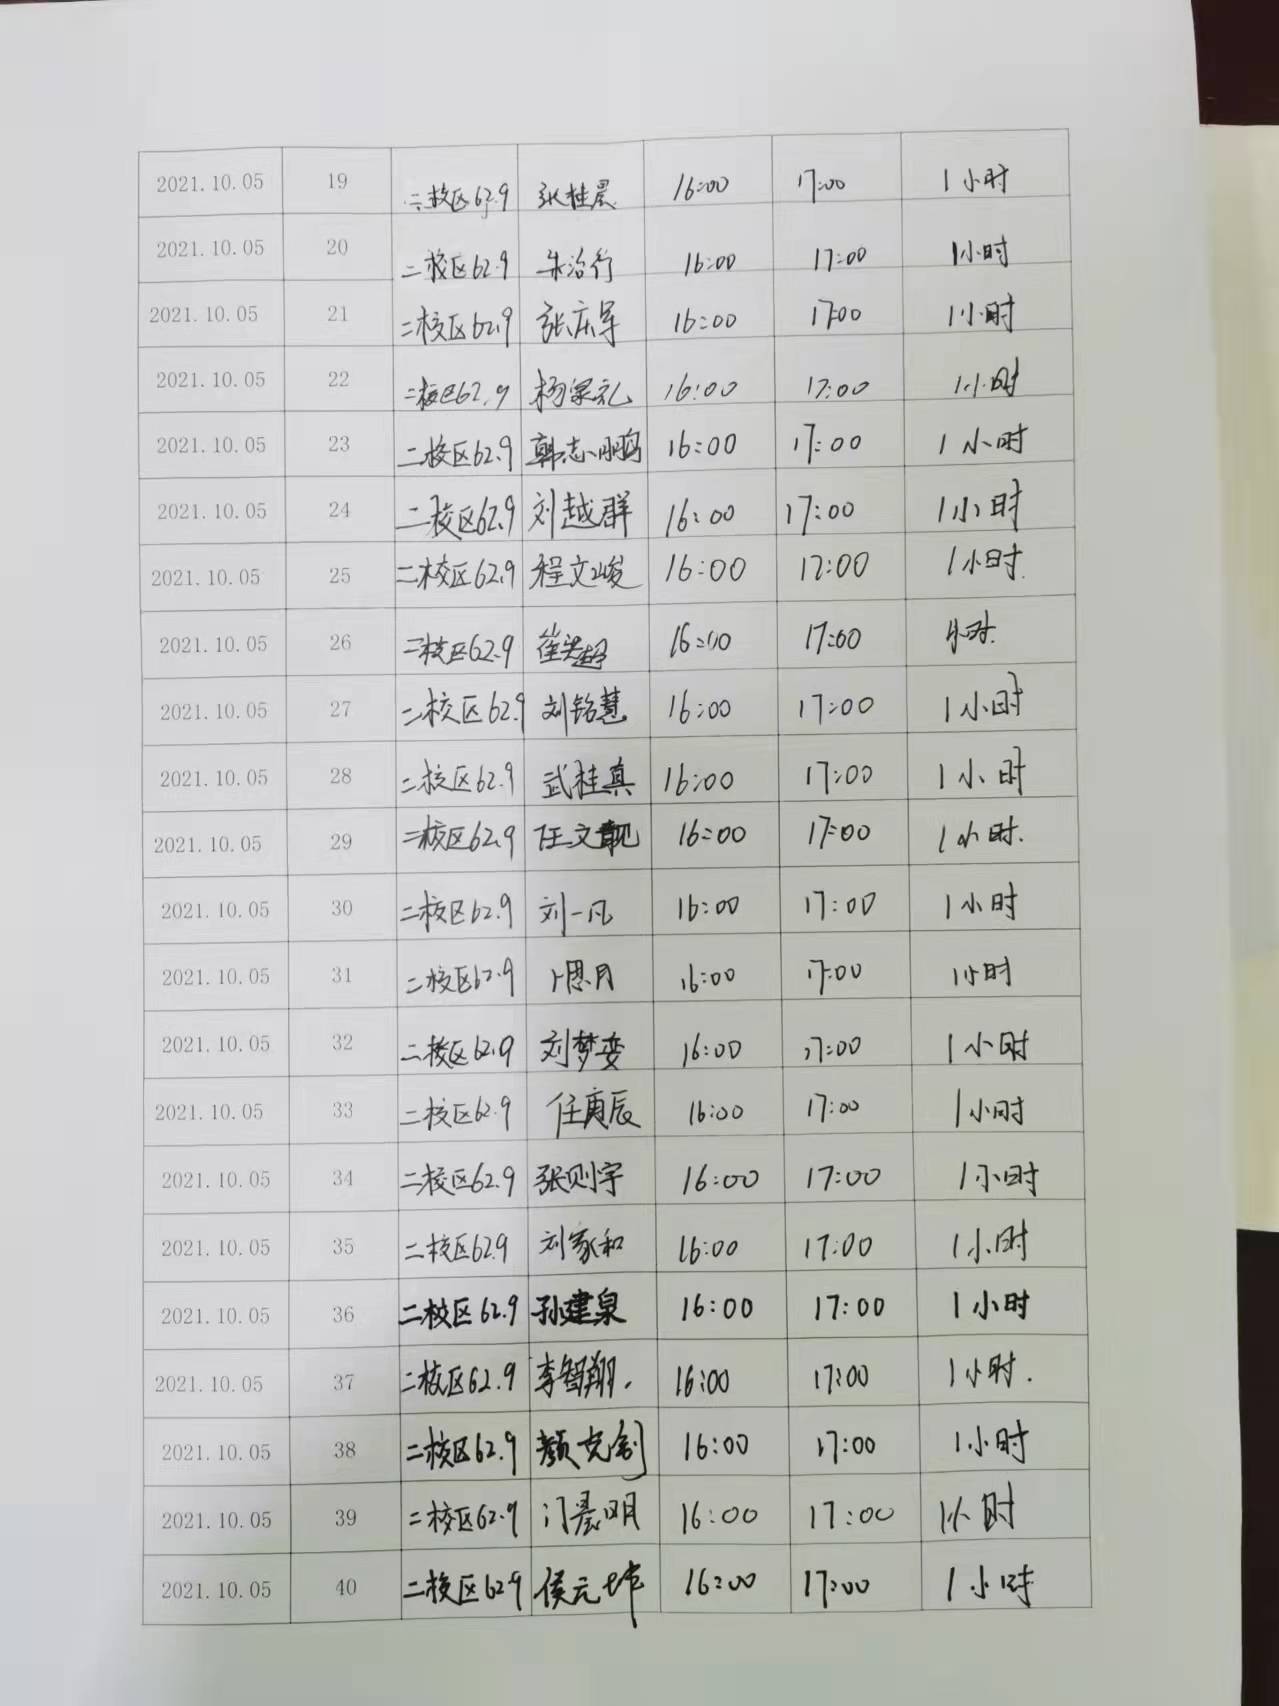 2021.10.05 19 二校区62.9 张桂晨 16:00 17:00 1小时
2021.10.05 20 二校区62.9 朱治行 16:00 17:00 1小时
2021.10.05 21 二校区62.9 张庆军 16:00 17:00 1小时
2021.10.05 22 二校区62.9 杨梁礼 16:00 17:00 1小时
2021.10.05 23 二校区62.9 郭志鹏 16:00 17:00 1小时
2021.10.05 24 二校区62.9 刘越群 16:00 17:00 1小时
2021.10.05 25 二校区62.9 程文峻 16:00 17:00 1小时.
2021.10.05 26 二校区62.9 崔 16:00 17:00 1小时.
2021.10.05 27 二校区62.9 刘铭慧 16:00 17:00 1小时
2021.10.05 28 二校区62.9 武桂真 16:00 17:00 1小时
2021.10.05 29 二校区62.9 任文靓 16:00 17:00 1小时.
2021.10.05 30 二校区62.9 刘一凡 16:00 17:00 1小时
2021.10.05 31 二校区62.9 卜恩月 16:00 17:00 1小时
2021.10.05 32 二校区62.9 刘梦娈 16:00 17:00 1小时
2021.10.05 33 二校区62.9 任庚辰 16:00 17:00 1小时
2021.10.05 34 二校区62.9 张则宇 16:00 17:00 1小时
2021.10.05 35 二校区62.9 刘家和 16:00 17:00 1小时
2021.10.05 36 二校区62.9 孙建泉 16:00 17:00 1小时
2021.10.05 37 二校区62.9 李智翔. 16:00 17:00 1小时.
2021.10.05 38 二校区62.9 颜克剑 16:00 17:00 1小时
2021.10.05 39 二校区62.9 门晨明 16:00 17:00 1小时
2021.10.05 40 二校区62.9 侯元坤 16:00 17:00 1小时